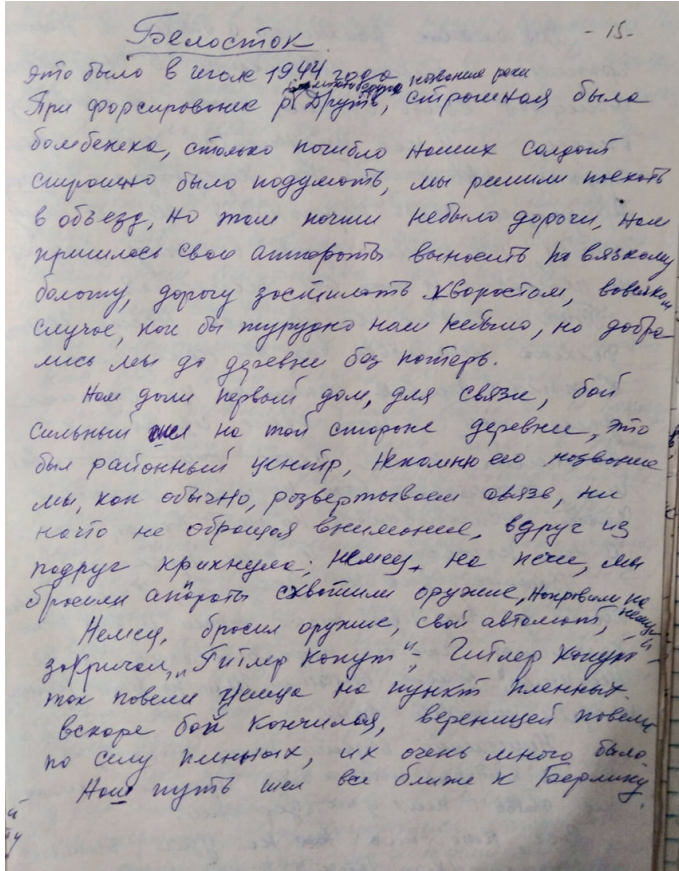 Белосток
- 15 -
Это было в июле 1944 года
название реки
При форсирование р. Друть, страшная была
бомбежка, столько погибло наших солдат
страшно было подумать, мы решили поехать
в объезд, но там почти небыло дороги, нам
пришлось свои аппараты выносить по вязкому
болоту, дорогу застилать хворостом, вовсяком
случае, как бы турудно нам небыло, но добра
лись мы до деревни без потерь.
Нам дали первый дом, для связи, бой
сильный шел на той стороне деревни, это
был районный центр, непомню его название
мы, как обычно, развертываем связь, ни
начто не обращая внимание, вдруг из
подруг крикнула; немец на печи, мы
бросили апараты схватили оружие, направили на
немца
Немец, бросил оружие, свой автомат, и
закричал, „Гитлер капут", Гитлер капут -
так повели немца на пункт пленных.
вскоре бой кончился, вереницей повели
по селу пленных, их очень много было.
Наш путь шел все ближе к Берлину.